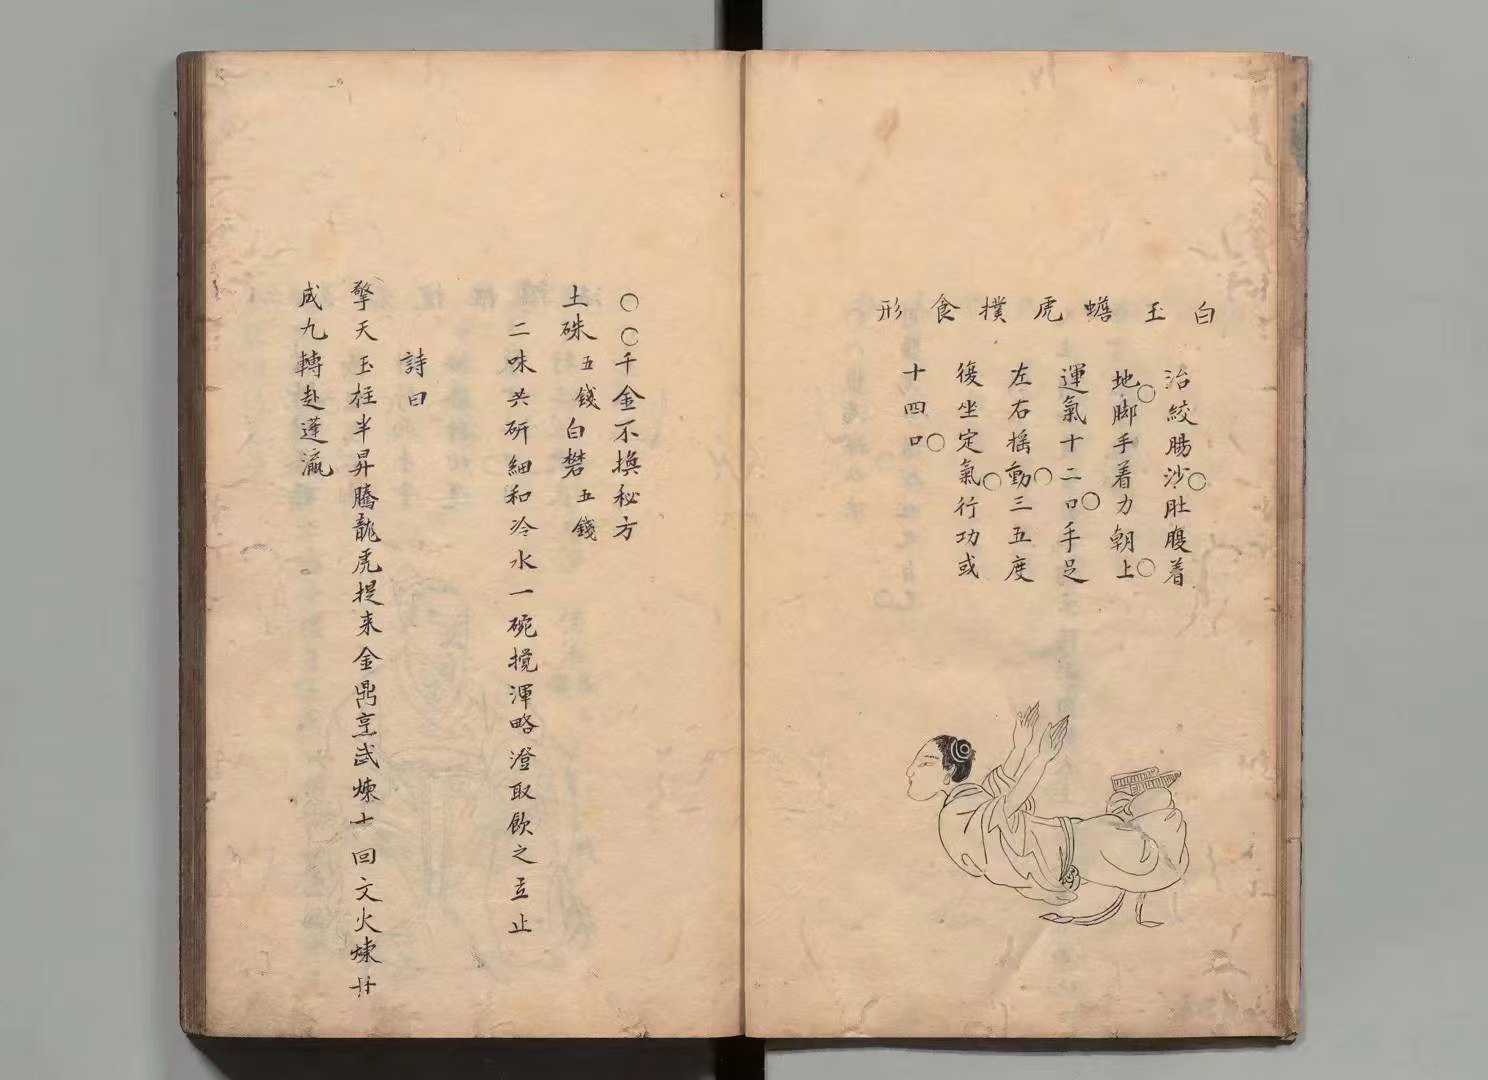 白玉蟾虎撲食形
治絞腸沙○肚腹着
地○脚手着力朝上○
運氣十二口○手足
左右摇動○三五度
後坐定氣○行功或
十四口○
○○千金不換秘方
土硃五錢白礬五錢
二味共研細和冷水一碗攪渾略澄取飲之立止
詩曰
擎天玉柱半昇騰龍虎提来金鼎烹武煉十回文火煉廿
成九轉赴蓬瀛